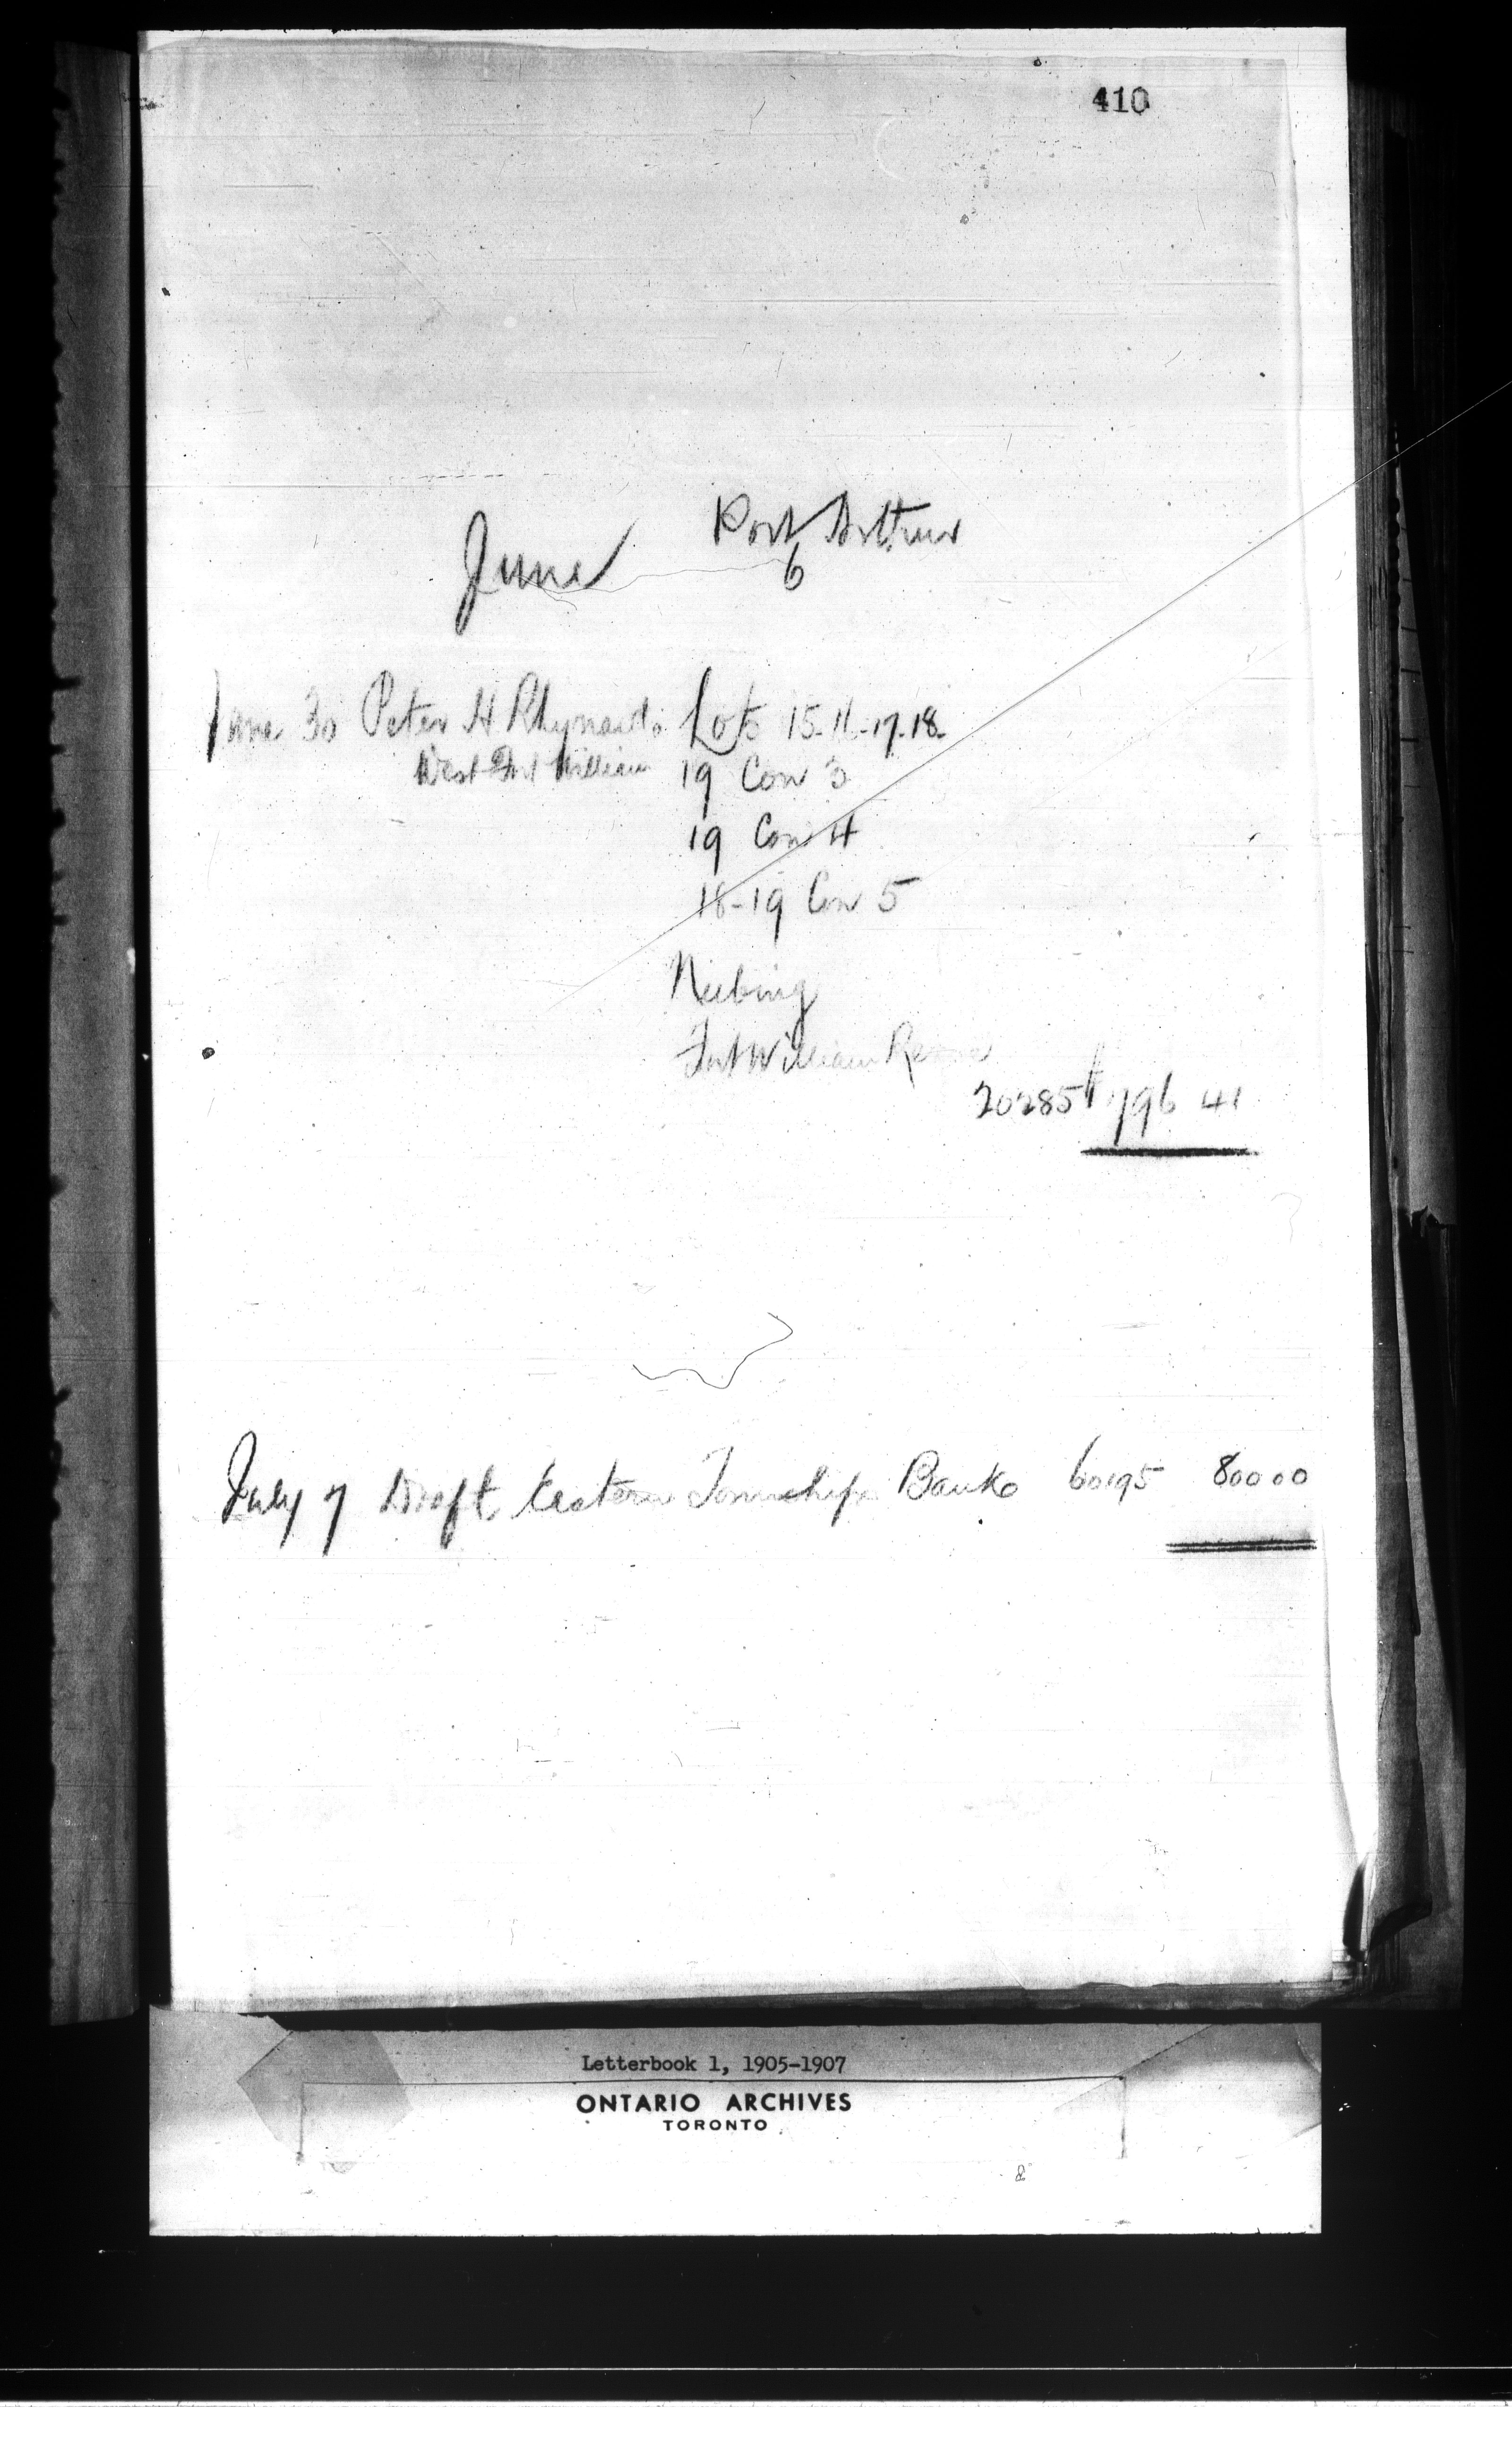 410
Port Arthur
June 6
June 30 Peter H Rhynard Lots 15-16-17-18-
West Fort William 19 Con 3
19 Con 4
18-19 Con 5
Neebing
Fort William
20285 $796 41
July 7 Draft Eastern Townships Bank 60195 80000
Letterbook 1, 1905-1907
ONTARIO ARCHIVES
TORONTO